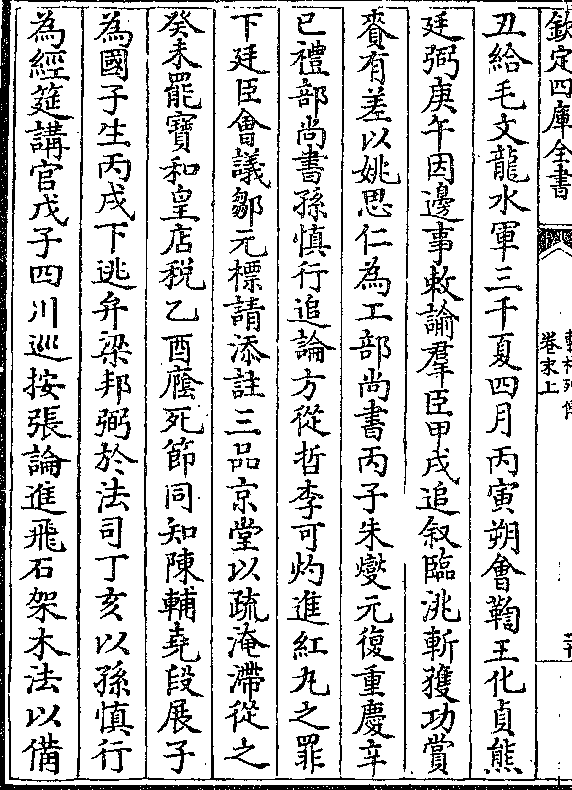 欽定四庫全書
卷末上
丑給毛文龍水軍三千夏四月丙寅朔會鞫王化貞熊
廷弼庚午因邊事敕諭羣臣甲戌追叙臨洮斬獲功賞
賚有差以姚思仁為工部尚書丙子朱燮元復重慶辛
巳禮部尚書孫慎行追論方從哲李可灼進紅丸之罪
下廷臣會議鄒元標請添註三品京堂以疏淹滯從之
癸未罷寶和皇店稅乙酉廕死節同知陳輔堯段展子
為國子生丙戌下逃弁梁邦弼於法司丁亥以孫慎行
為經筵講官戊子四川巡按張論進飛石架木法以備